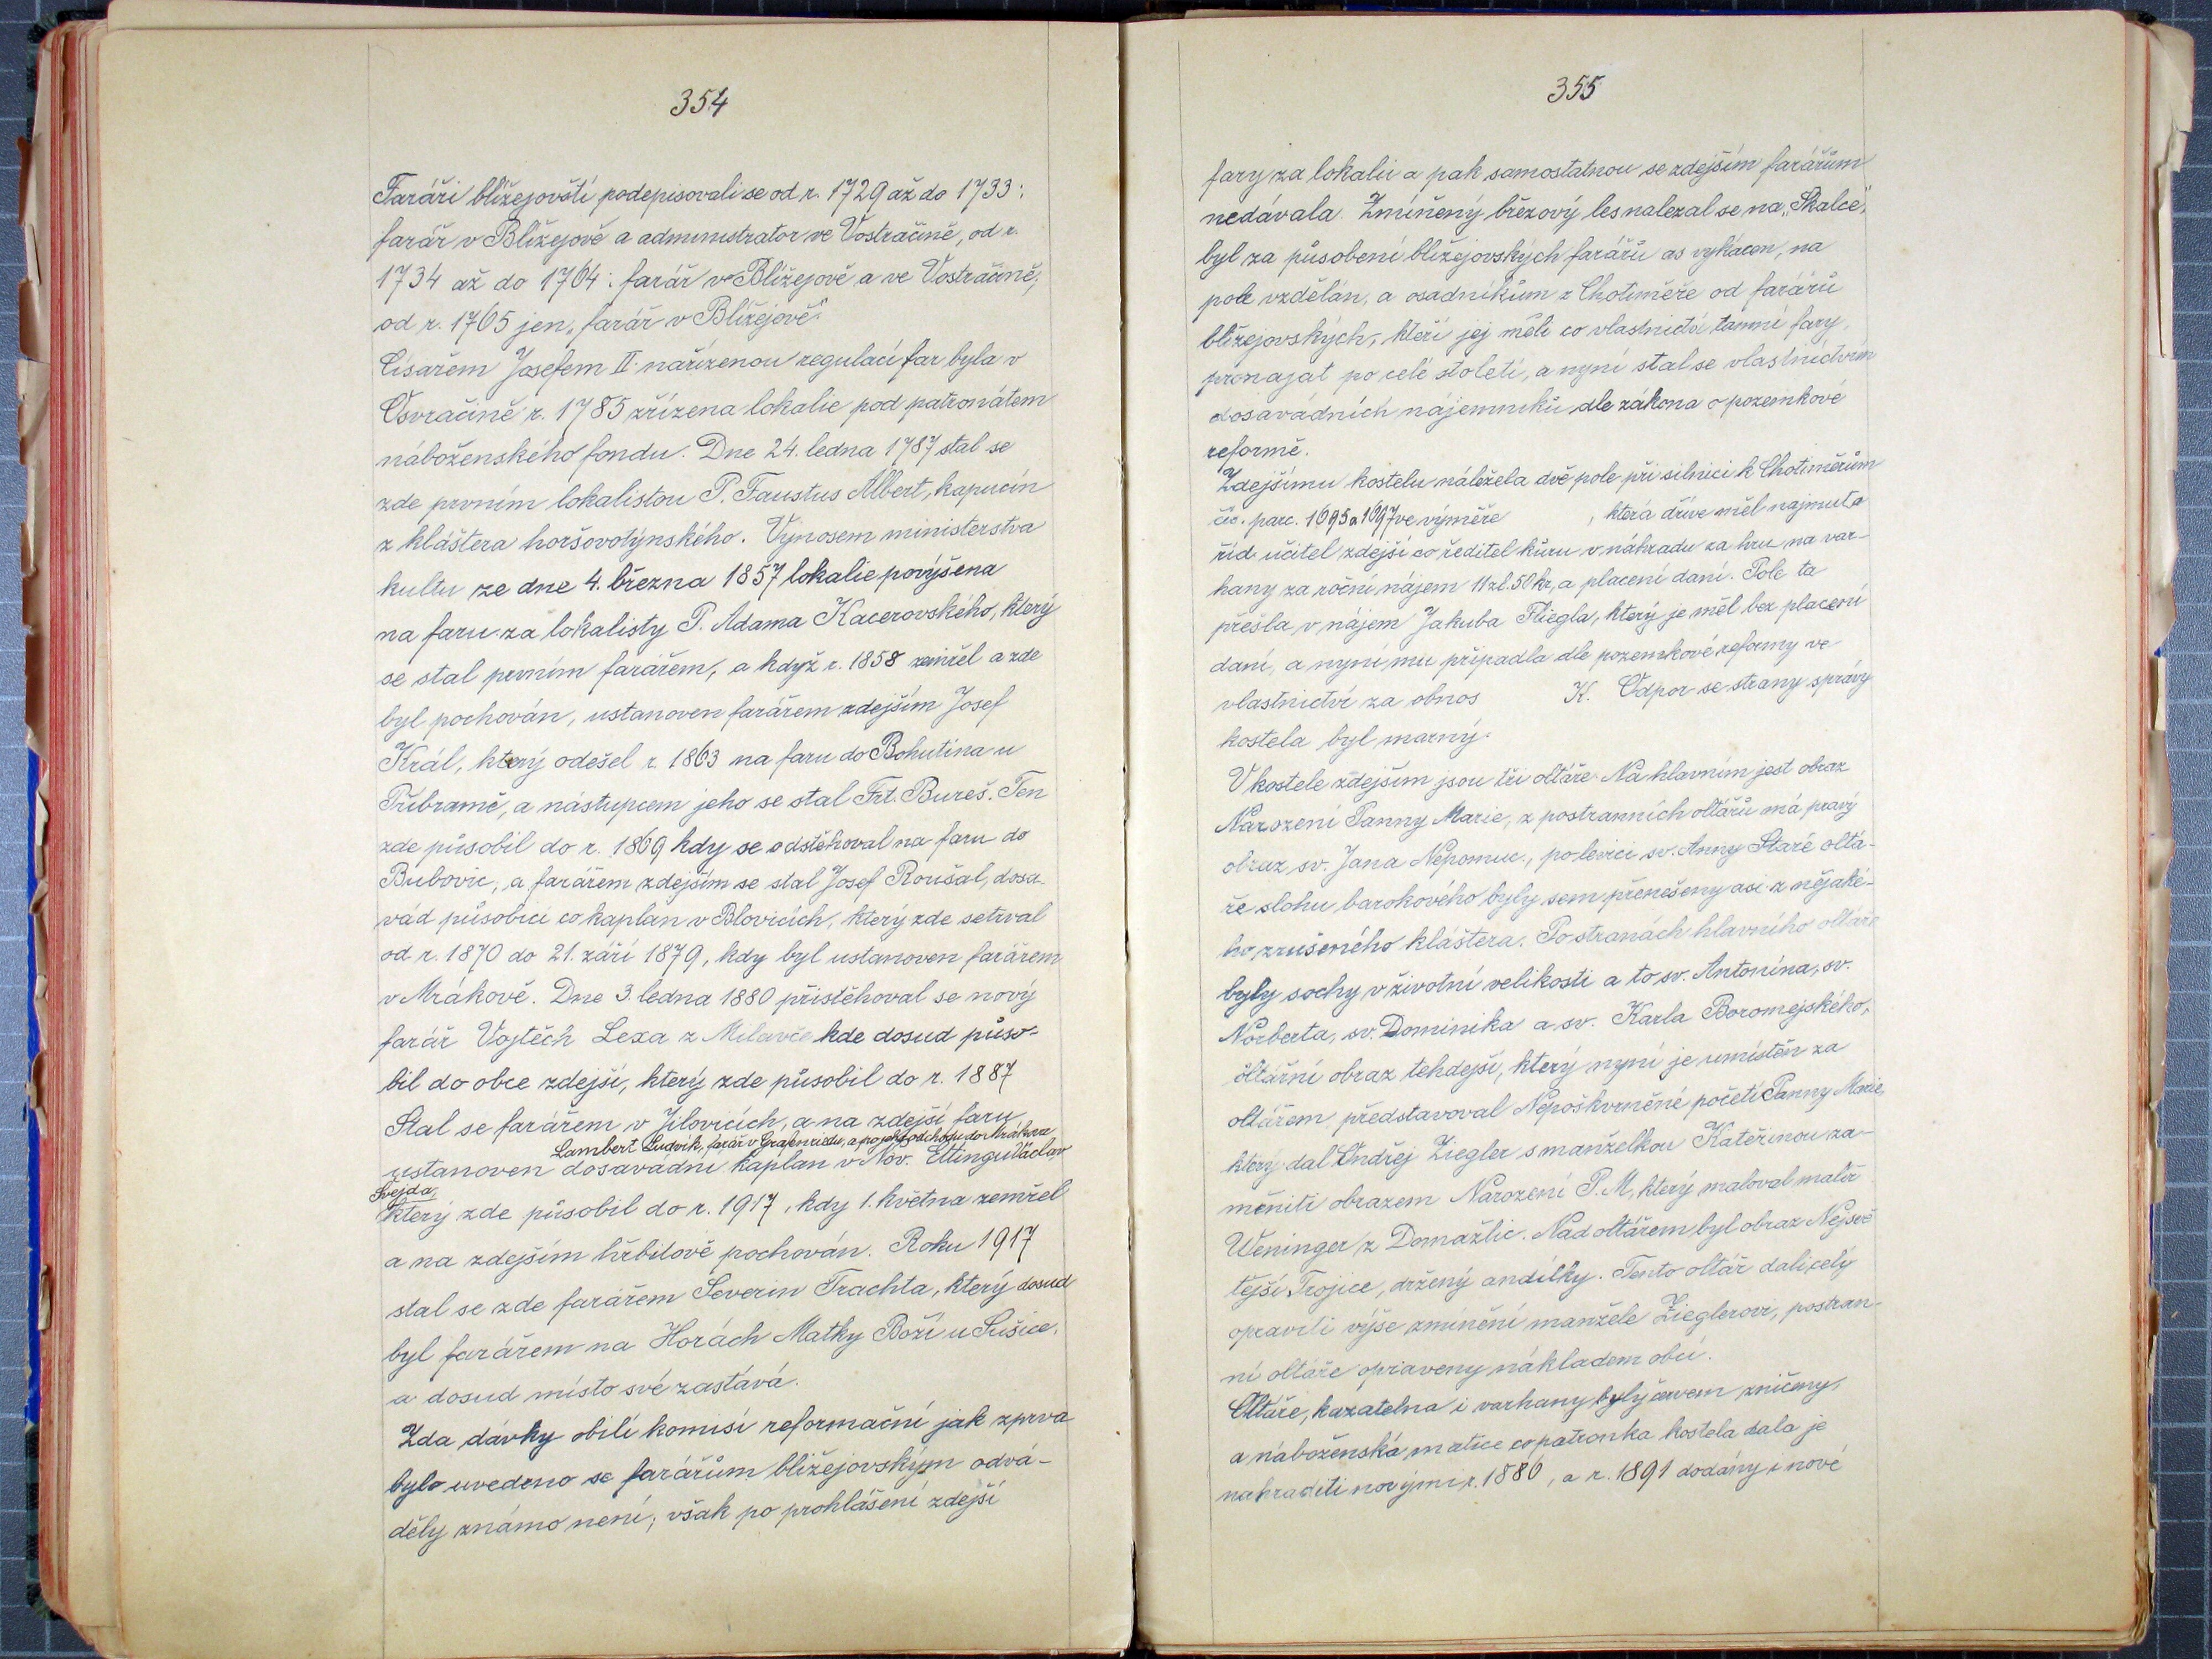 354
Faráři blížejovští podepisovali se od r. 1729 až do 1733:
farář v Blížejově a administrator ve Vostračině, od r.
1734 až do 1764: farář v Blížejově a ve Vostračině;
od r. 1765 jen „farář v Blížejově."
Císařem Josefem II. nařízenou regulací far byla v
Osvračině r. 1785 zřízena lokalie pod patronátem
náboženského fondu. Dne 24. ledna 1787 stal se
zde prvním lokalistou P. Faustus Albert, kapucín
z kláštera horšovotýnského. Výnosem ministerstva
kultu ze dne 4. března 1857 lokalie povýšena
na faru za lokalisty P. Adama Kacerovského, který
se stal prvním farářem, a když r. 1858 zemřel a zde
byl pochován, ustanoven farářem zdejším Josef
Král, který odešel r. 1863 na faru do Bohutína u
Příbramě, a nástupcem jeho se stal Frt. Bureš. Ten
zde působil do r. 1869 kdy se odstěhoval na faru do
Bubovic, a farářem zdejším se stal Josef Roušal, dosa-
vád působící co kaplan v Blovicích, který zde setrval
od r. 1870 do 21. září 1879, kdy byl ustanoven farářem
v Mrákově. Dne 3. ledna 1880 přistěhoval se nový
farář Vojtěch Lexa z Milavče kde dosud půso-
bil do obce zdejší, který zde působil do r. 1887
Stal se farářem v Jílovicích, a na zdejší faru
Lambert Ludvík, farář v Grafenriedu, a po jeho odchodu do Mrákova
ustanoven dosavádní kaplan v Nov. Ettingu Václav
Švejda,
který zde působil do r. 1917, kdy 1. května zemřel
a na zdejším hřbitově pochován. Roku 1917
stal se zde farářem Severin Trachta, který dosud
byl farářem na Horách Matky Boží u Sušice,
a dosud místo své zastává.
Zda dávky obilí komisí reformační jak zprva
bylo uvedeno se farářům blížejovským odvá-
děly známo není; však po prohlášení zdejší
355
fary za lokalii a pak samostatnou se zdejším farářům
nedávala. Zmíněný březový les nalezal se na „Skalce",
byl za působení blížejovských farářů as vykácen, na
pole vzdělán, a osadníkům z Chotiměře od farářů
blížejovských, kteří jej měli co vlastnictví tamní fary,
pronajat po celé století, a nyní stal se vlastnictvím
dosavádních nájemníků dle zákona o pozemkové
reformě.
Zdejšímu kostelu náležela dvě pole při silnici k Chotiměřům
čís. parc. 1695 a 1697 ve výměře , která dříve měl najmuta
říd. učitel zdejší co ředitel kůru v náhradu za hru na var-
hany za roční nájem 11 zl. 50 kr, a placení daní. Pole ta
přešla v nájem Jakuba Fliegla, který je měl bez placení
daní, a nyní mu připadla dle pozemkové reformy ve
vlastnictví za obnos K. Odpor se strany správy
kostela byl marný.
V kostele zdejším jsou tři oltáře. Na hlavním jest obraz
Narození Panny Marie, z postranních oltářů má pravý
obraz sv. Jana Nepomuc., po levici sv. Anny Staré oltá-
ře slohu barokového byly sem přenešeny asi z nějaké-
ho zrušeného kláštera. Po stranách hlavního oltáře
byly sochy v životní velikosti a to sv. Antonína, sv.
Norberta, sv. Dominika a sv. Karla Boromejského,
oltářní obraz tehdejší, který nyní je umístěn za
oltářem představoval Neposkvrněné početí Panny Marie,
který dal Ondřej Ziegler s manželkou Kateřinou za-
měniti obrazem Narození P. M, který maloval malíř
Weninger z Domažlic. Nad oltářem byl obraz Nejsvě
tejší Trojice, držený andílky. Tento oltář dali celý
opraviti výše zmínění manželé Zieglerovi, postran-
ní oltáře opraveny nákladem obcí.
Oltáře, kazatelna i varhany byly červem zničeny,
a náboženská matice co patronka kostela dala je
nahraditi novými r. 1886, a r. 1891 dodány i nové